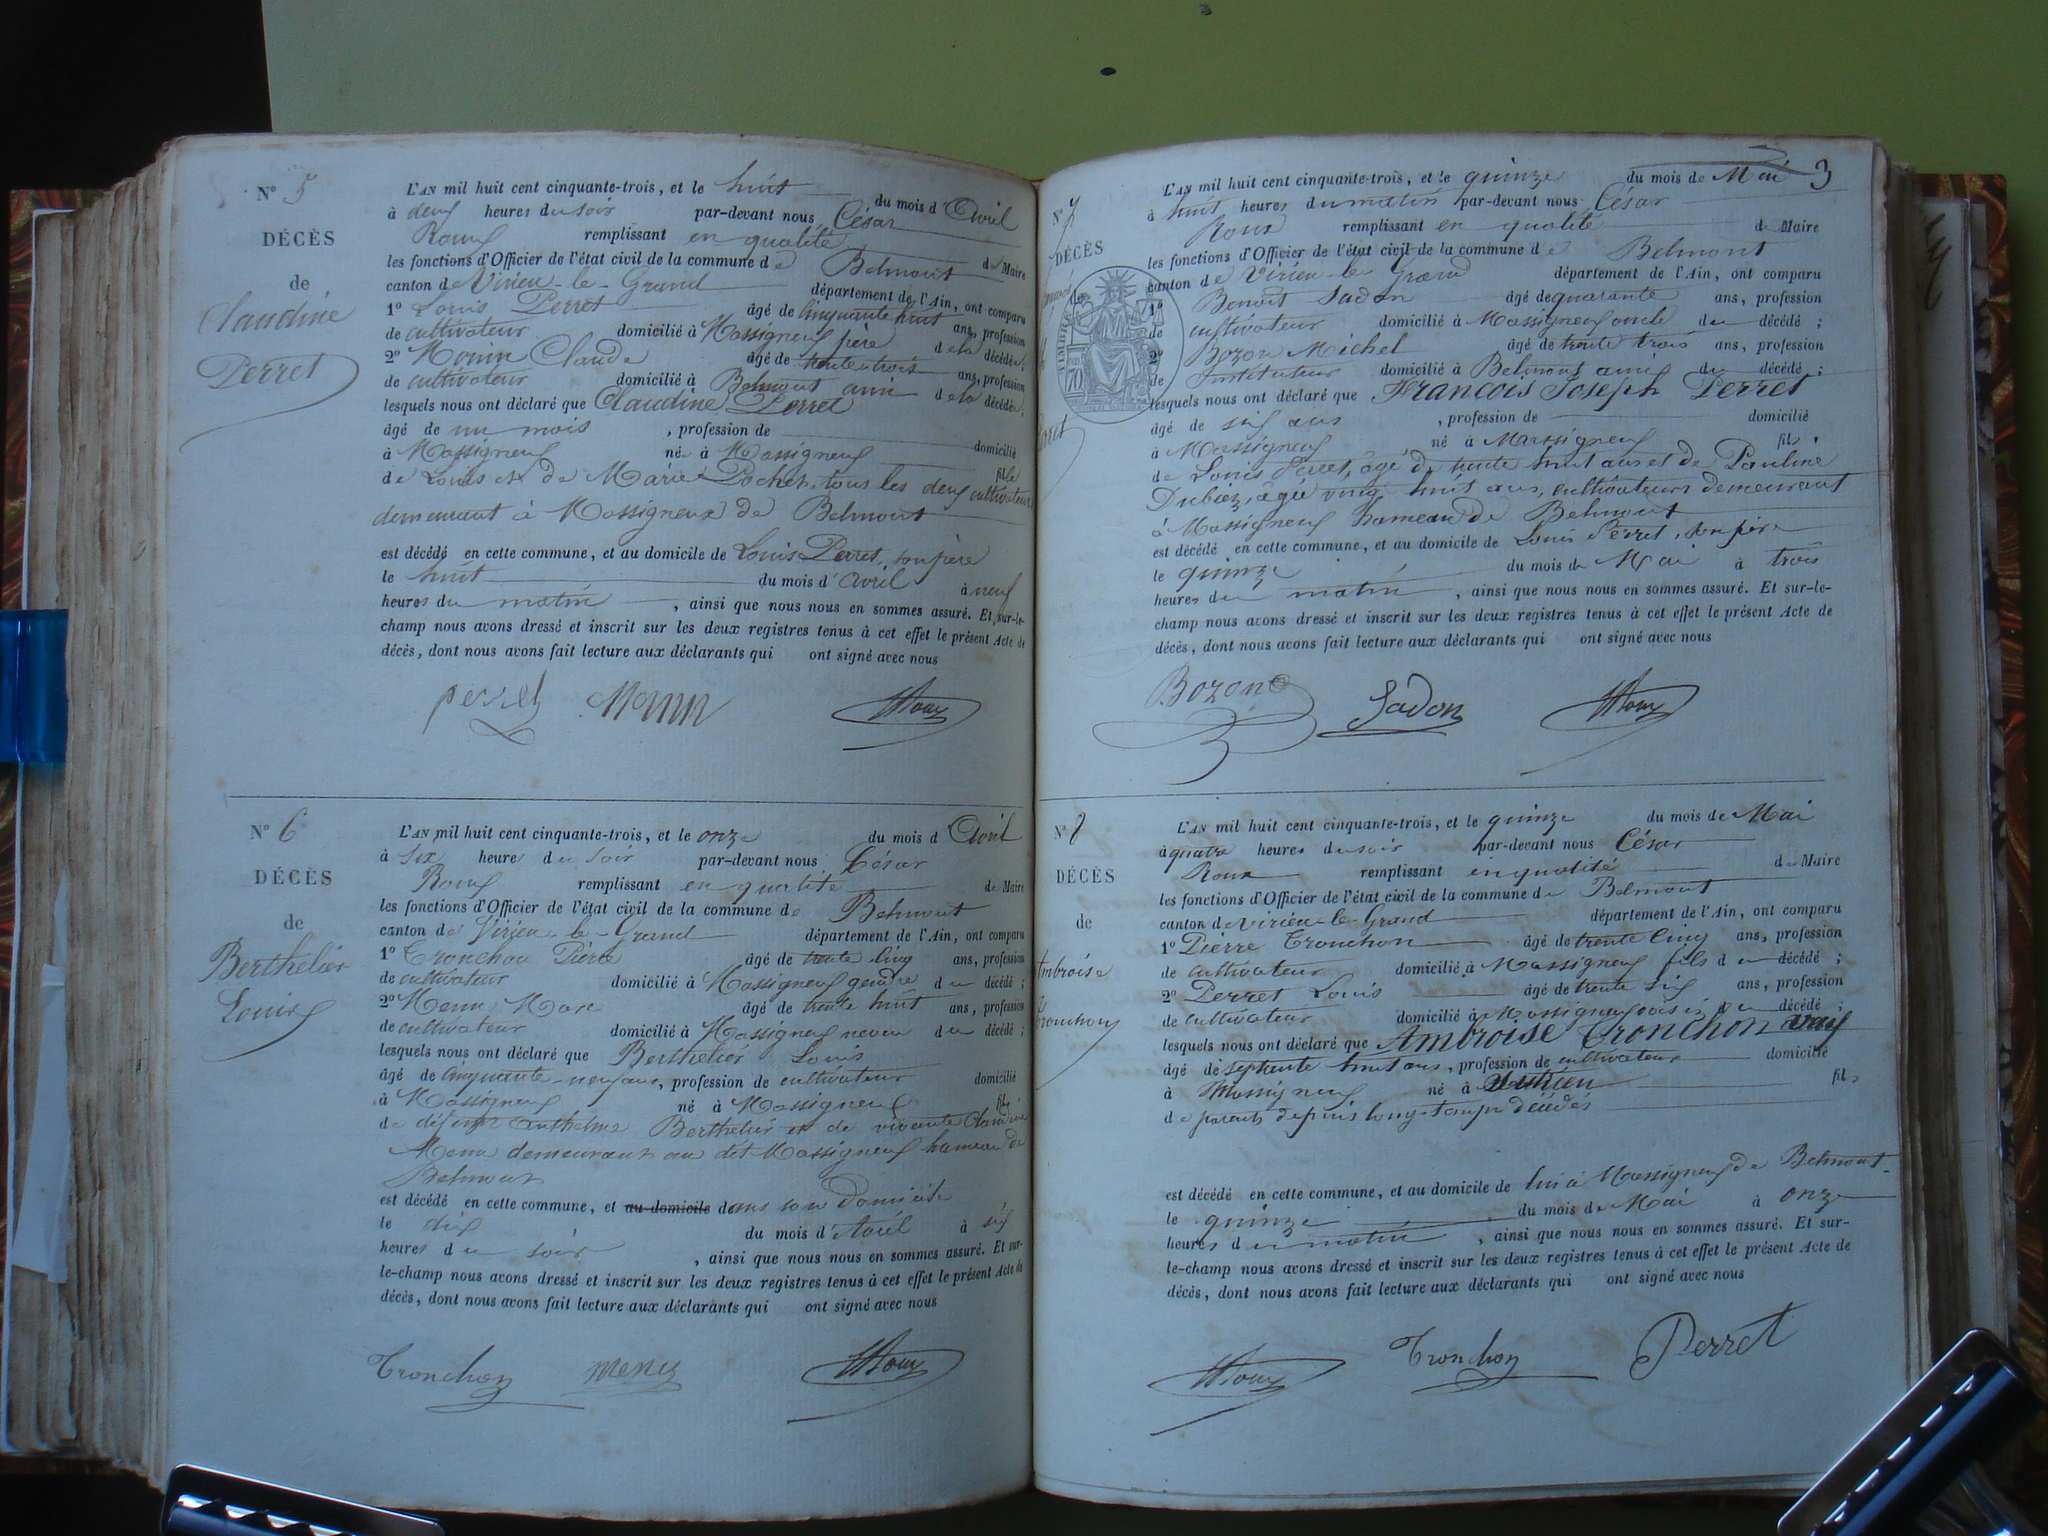 N° 5
DÉCÈS
de
Claudine
Perret
L'AN mil huit cent cinquante-trois, et le huit du mois d'Avril
à deux heures du soir par-devant nous César
Roux remplissant en qualité de Maire
les fonctions d'Officier de l'état civil de la commune de Belmont
canton de Virieu-le-Grand département de l'Ain, ont comparu
1° Louis Perret âgé de cinquante huit ans, profession
de cultivateur domicilié à Massigneux père de la décédée;
2° Monin Claude âgé de trente trois ans, profession
de cultivateur domicilié à Belmont ami de la décédée;
lesquels nous ont déclaré que Claudine Perret
âgé de un mois, profession de domicilié
à Massigneux né à Massigneux fille
de Louis et de Marie Pochet, tous les deux cultivateurs
demeurant à Massigneux de Belmont
est décédé en cette commune, et au domicile de Louis Perret, son père
le huit du mois d'avril à neuf
heures du matin, ainsi que nous nous en sommes assuré. Et sur-le-
champ nous avons dressé et inscrit sur les deux registres tenus à cet effet le présent Acte de
décès, dont nous avons fait lecture aux déclarants qui ont signé avec nous
perret Monin Roux
N° 6
DÉCÈS
de
Berthelier
Louis
L'AN mil huit cent cinquante-trois, et le onze du mois d'Avril
à six heures du soir par-devant nous César
Roux remplissant en qualité de Maire
les fonctions d'Officier de l'état civil de la commune de Belmont
canton de Virieu-le-Grand département de l'Ain, ont comparu
1° Tronchon Pierre âgé de trente cinq ans, profession
de cultivateur domicilié à Massigneux gendre du décédé;
2° Menu Marc âgé de trente huit ans, profession
de cultivateur domicilié à Massigneux neveu du décédé;
lesquels nous ont déclaré que Berthelier Louis
âgé de cinquante-neuf ans, profession de cultivateur domicilié
à Massigneux né à Massigneux fils
de défunt Anthelme Berthelier et de vivante Claudine
Menu demeurant au dit Massigneux hameau de
Belmont
est décédé en cette commune, et au domicile dans son domicile
le dix du mois d'Avril à six
heures du soir, ainsi que nous nous en sommes assuré. Et sur-
le-champ nous avons dressé et inscrit sur les deux registres tenus à cet effet le présent Acte de
décès, dont nous avons fait lecture aux déclarants qui ont signé avec nous
Tronchon menu Roux
3
N° 7
DÉCÈS
de
Perret
L'AN mil huit cent cinquante-trois, et le quinze du mois de Mai
à huit heures du matin par-devant nous César
Roux remplissant en qualité de Maire
les fonctions d'Officier de l'état civil de la commune de Belmont
canton de Virieu-le-Grand département de l'Ain, ont comparu
1° Benoit Sadon âgé de quarante ans, profession
de cultivateur domicilié à Massigneux oncle du décédé;
2° Bozon Michel âgé de trente trois ans, profession
de Instituteur domicilié à Belmont ami du décédé;
lesquels nous ont déclaré que François Joseph Perret
âgé de six ans, profession de domicilié
à Massigneux né à Massigneux fils
de Louis Perret, âgé de trente huit ans et de Pauline
Dubiez, âgée vingt huit ans, cultivateurs demeurant
à Massigneux hameau de Belmont
est décédé en cette commune, et au domicile de Louis Perret, son père
le quinze du mois de Mai à trois
heures du matin, ainsi que nous nous en sommes assuré. Et sur-le-
champ nous avons dressé et inscrit sur les deux registres tenus à cet effet le présent Acte de
décès, dont nous avons fait lecture aux déclarants qui ont signé avec nous
Bozon Sadon Roux
N° 8
DÉCÈS
de
Ambroise
Tronchon
L'AN mil huit cent cinquante-trois, et le quinze du mois de Mai
à quatre heures du soir par-devant nous César
Roux remplissant en qualité de Maire
les fonctions d'Officier de l'état civil de la commune de Belmont
canton de Virieu-le-Grand département de l'Ain, ont comparu
1° Pierre Tronchon âgé de trente cinq ans, profession
de cultivateur domicilié à Massigneux fils du décédé;
2° Perret Louis âgé de trente six ans, profession
de cultivateur domicilié à Massigneux voisin du décédé;
lesquels nous ont déclaré que Ambroise Tronchon veuf
âgé de septente huit ans, profession de cultivateur domicilié
à Massigneux né à fils
de parents depuis long-temps décédés
est décédé en cette commune, et au domicile de lui à Massigneux de Belmont
le quinze du mois de Mai à onze
heures du matin, ainsi que nous nous en sommes assuré. Et sur-
le-champ nous avons dressé et inscrit sur les deux registres tenus à cet effet le présent Acte de
décès, dont nous avons fait lecture aux déclarants qui ont signé avec nous
Roux Tronchon Perret